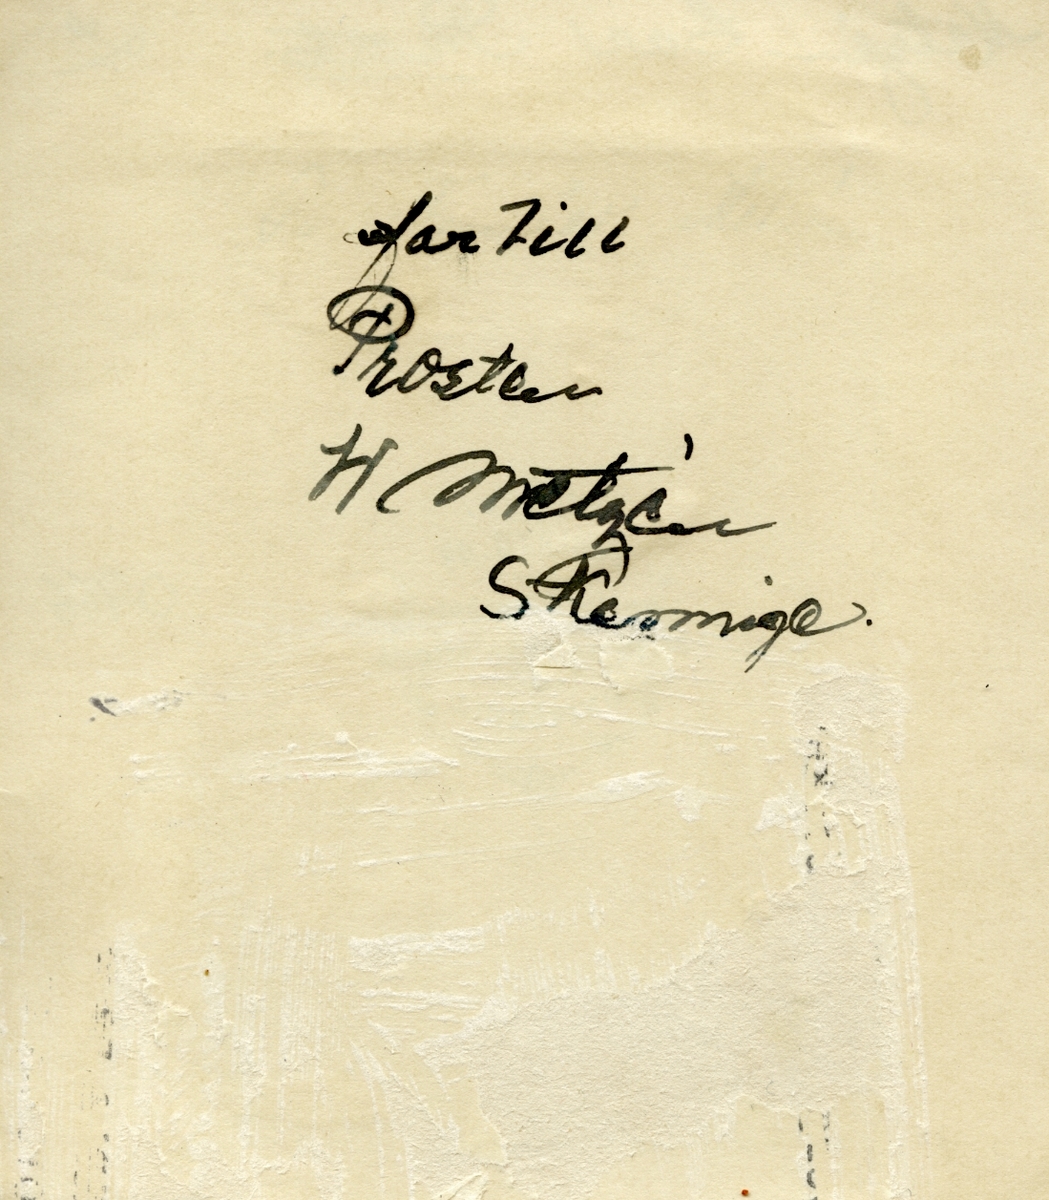 far Till
Prosten
H Metzér
Skennige.